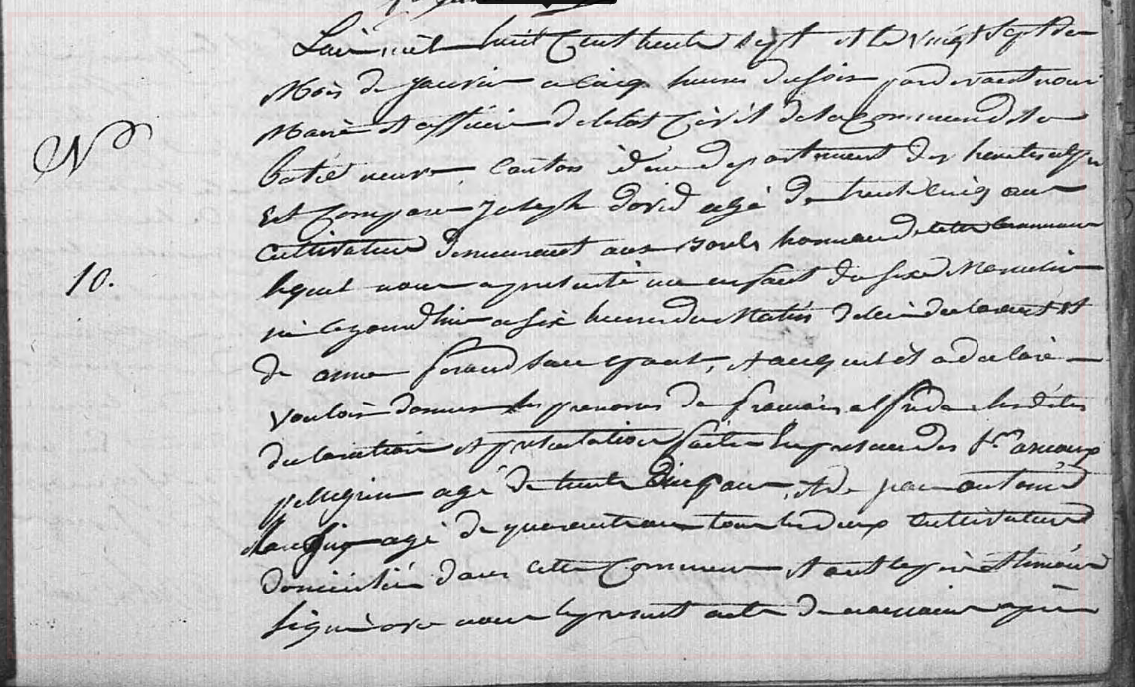 L'an mil huit Cent trente sept et le vingt sept du
Mois de janvier a cinq heures du soir pardevant nous
Maire et officier de letat Civil de la commune de la
batie neuve Canton idem departement des hautes alpes
Est Comparu Joseph david agé de trente cinq ans
cultivateur demeurant aux hameau de cette commune
lequel nous a presenté un enfant du sexe Masculin
né cejourdhui a six heures du Matin de lui declarant et
de anne son epouse, et auquel il a declaré
vouloir donner les prenoms de francois alfred lesdites
declaration et presentation faites En presence des Srs
pellegrin agé de trente cinq ans, et de jean antoine
agé de quarante ans tous les deux cultivateurs
domiciliés dans cette Commune et ont le père et temoins
signé avec nous le present acte de naissance après
N°
10.